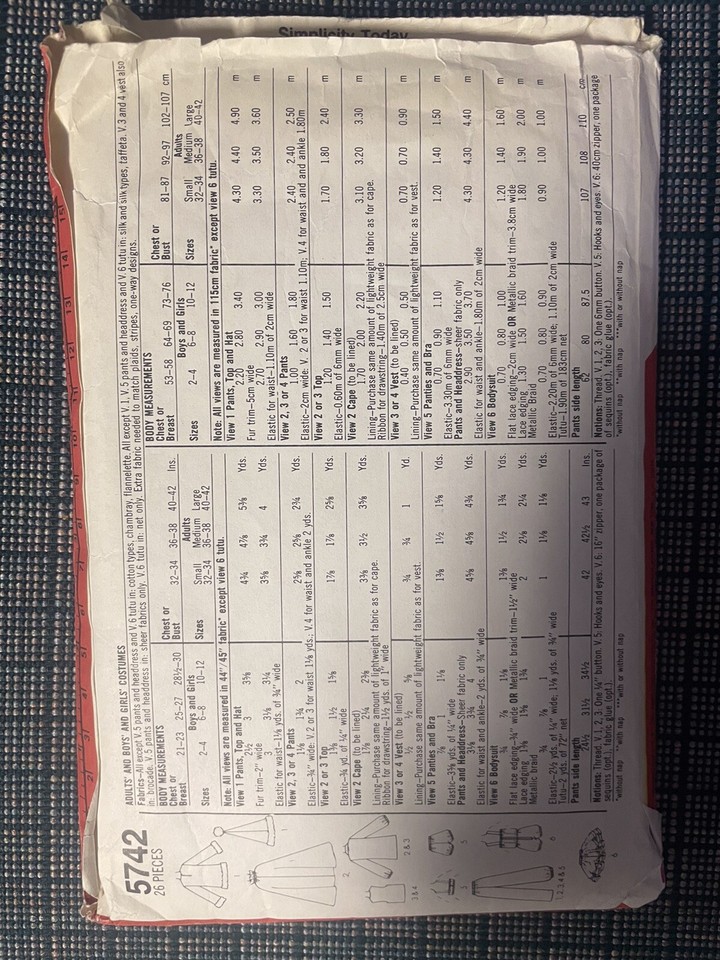 Simplicity Today
5742
26 PIECES
ADULTS' AND BOYS' AND GIRLS' COSTUMES
Fabrics—All except V.5 pants and headdress and V.6 tutu in: cotton types, chambray, flannelette. All except V.1, V.5 pants and headdress and V.6 tutu in: silk and silk types, taffeta. V.3 and 4 vest also
in: brocade. V.5 pants and headdress in: sheer fabrics only. V.6 tutu in: net only. Extra fabric needed to match plaids, stripes, one-way designs.
BODY MEASUREMENTS
Chest or Breast 21–23 25–27 28½–30 Chest or Bust 32–34 36–38 40–42 Ins.
Boys and Girls Adults
Small Medium Large
Sizes 2–4 6–8 10–12 Sizes 32–34 36–38 40–42
Note: All views are measured in 44"/45" fabric* except view 6 tutu.
View 1 Pants, Top and Hat
2½ 3 3⅜ 4¾ 4⅞ 5⅜ Yds.
Fur trim–2" wide
3 3⅛ 3¼ 3⅝ 3¾ 4 Yds.
Elastic for waist–1⅛ yds. of ¾" wide
View 2, 3 or 4 Pants
1⅛ 1¾ 2 2⅝ 2⅝ 2¾ Yds.
Elastic–¾" wide: V. 2 or 3 for waist 1⅛ yds.; V.4 for waist and ankle 2 yds.
View 2 or 3 Top
1⅜ 1½ 1⅝ 1⅞ 1⅞ 2⅝ Yds.
Elastic–¾ yd. of ¼" wide
View 2 Cape (to be lined)
1⅞ 2¼ 2⅜ 3⅜ 3½ 3⅝ Yds.
Lining–Purchase same amount of lightweight fabric as for cape.
Ribbon for drawstring–1½ yds. of 1" wide
View 3 or 4 Vest (to be lined)
½ ½ ⅝ ¾ ¾ 1 Yd.
Lining–Purchase same amount of lightweight fabric as for vest.
View 5 Panties and Bra
⅞ 1 1⅛ 1⅜ 1½ 1⅝ Yds.
Elastic–3⅝ yds. of ¼" wide
Pants and Headdress–Sheer fabric only
3⅛ 3¾ 4 4⅝ 4⅝ 4¾ Yds.
Elastic for waist and ankle–2 yds. of ¾" wide
View 6 Bodysuit
¾ ⅞ 1⅛ 1⅜ 1½ 1¾ Yds.
Flat lace edging–¾" wide OR Metallic braid trim–1½" wide
Lace edging 1⅜ 1⅝ 1¾ 2 2⅛ 2¼ Yds.
Metallic braid ¾ ⅞ 1 1 1⅛ 1⅛ Yds.
Elastic–2½ yds. of ¼" wide, 1⅛ yds. of ¾" wide
Tutu–2 yds. of 72" net
Pants side length
24½ 31½ 34½ 42 42½ 43 Ins.
Notions: Thread, V.1, 2, 3: One ¼" button. V.5: Hooks and eyes. V.6: 16" zipper, one package of
sequins (opt.), fabric glue (opt.).
*without nap **with nap ***with or without nap
BODY MEASUREMENTS
Chest or Breast 53–58 64–69 73–76 Chest or Bust 81–87 92–97 102–107 cm
Boys and Girls Adults
Small Medium Large
Sizes 2–4 6–8 10–12 Sizes 32–34 36–38 40–42
Note: All views are measured in 115cm fabric* except view 6 tutu.
View 1 Pants, Top and Hat
2.20 2.80 3.40 4.30 4.40 4.90 m
Fur trim–5cm wide
2.70 2.90 3.00 3.30 3.50 3.60 m
Elastic for waist–1.10m of 2cm wide
View 2, 3 or 4 Pants
1.00 1.60 1.80 2.40 2.40 2.50 m
Elastic–2cm wide: V. 2 or 3 for waist 1.10m; V.4 for waist and and ankle 1.80m
View 2 or 3 Top
1.20 1.40 1.50 1.70 1.80 2.40 m
Elastic–0.60m of 6mm wide
View 2 Cape (to be lined)
1.70 2.00 2.20 3.10 3.20 3.30 m
Lining–Purchase same amount of lightweight fabric as for cape.
Ribbon for drawstring–1.40m of 2.5cm wide
View 3 or 4 Vest (to be lined)
0.40 0.50 0.50 0.70 0.70 0.90 m
Lining–Purchase same amount of lightweight fabric as for vest.
View 5 Panties and Bra
0.70 0.90 1.10 1.20 1.40 1.50 m
Elastic–3.30m of 6mm wide
Pants and Headdress–sheer fabric only
2.90 3.50 3.70 4.30 4.30 4.40 m
Elastic for waist and ankle–1.80m of 2cm wide
View 6 Bodysuit
0.70 0.80 1.00 1.20 1.40 1.60 m
Flat lace edging–2cm wide OR Metallic braid trim–3.8cm wide
Lace edging 1.30 1.50 1.60 1.80 1.90 2.00 m
Metallic Braid 0.70 0.80 0.90 0.90 1.00 1.00 m
Elastic–2.20m of 6mm wide, 1.10m of 2cm wide
Tutu–1.90m of 183cm net
Pants side length
62 80 87.5 107 108 110 cm
Notions: Thread, V.1, 2, 3: One 6mm button. V.5: Hooks and eyes. V.6: 40cm zipper, one package
of sequins (opt.), fabric glue (opt.).
*without nap **with nap ***with or without nap